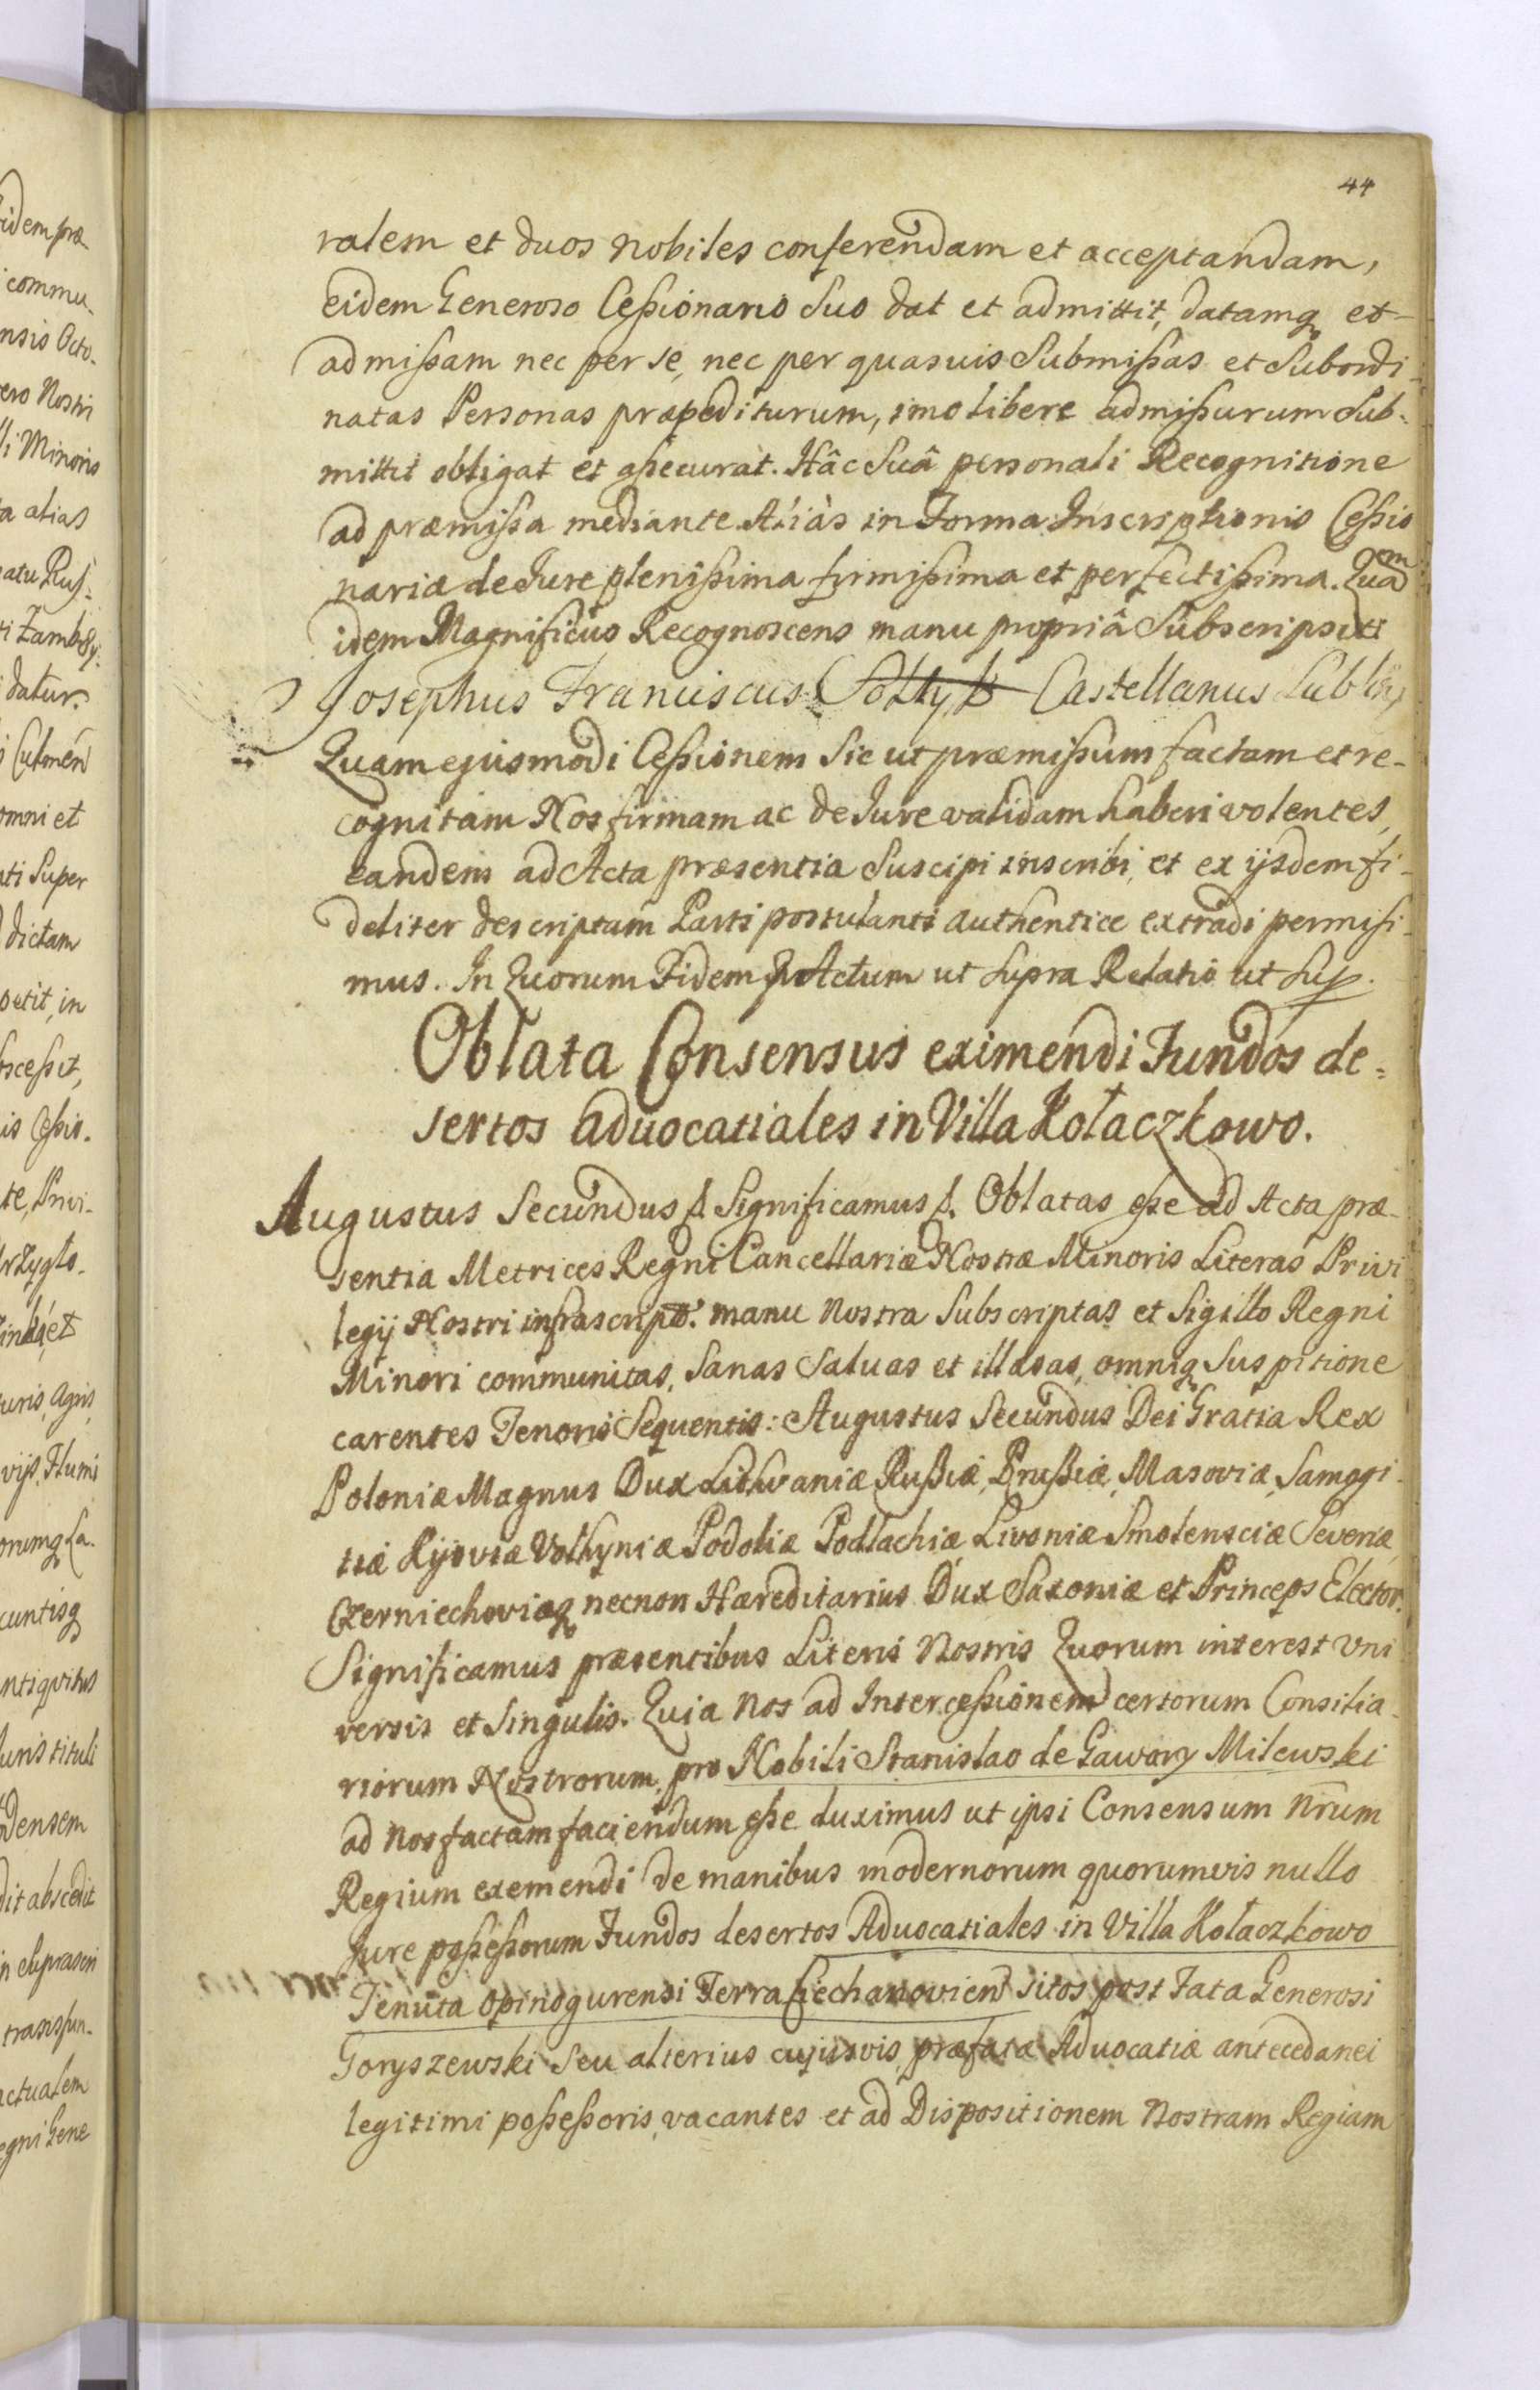 44
ralem et duos Nobiles conferendam et acceptandam,
eidem Generoso Cessionario Suo dat et admittit, datamq et
admissam nec per se, nec per quasuis Submissas et Subordi-
natas Personas præpediturum, imo libere admissurum Sub-
mittit obligat et assecurat. Hâc Suâ personali Recognitione
ad præmissa mediante Aliàs in Forma Inscriptionis Cessio
nariæ de Jure plenissima firmissima et perfectissima. Quam
idem Magnificus Recognoscens manu propriâ Subscripsit
Josephus Franciscus Sołtyk Castellanus Lublin
Quam ejusmodi Cessionem Sic ut præmissum factam et re-
cognitam Nos firmam ac de Jure validam haberi volentes,
eandem ad Acta præsentia Suscipi inscribi, et ex ijsdem fi-
deliter descriptam Parti postulanti authentice extradi permisi-
mus. In Quorum Fidem Actum ut Supra Relatio ut Sup.
Oblata Consensus eximendi Fundos de-
sertos aduocatiales in Villa Kołaczkowo.
Augustus Secundus Significamus Oblatas esse ad Acta præ-
sentia Metrices Regni Cancellariæ Nostræ Minoris Literas Privi
legij Nostri infrascript. manu Nostra Subscriptas et Sigillo Regni
Minori communitas, Sanas Saluas et illæsas, omniq Suspitione
carentes Tenoris Sequentis: Augustus Secundus Dei Gratia Rex
Poloniæ Magnus Dux Lithvaniæ Russiæ, Prussiæ, Masoviæ, Samogi-
tiæ Kijoviæ Volhyniæ Podoliæ Podlachiæ Livoniæ Smolensciæ Severiæ
Czerniechoviæq necnon Hæreditarius Dux Saxoniæ et Princeps Elector.
Significamus præsentibus Literis Nostris Quorum interest Vni
versis et Singulis. Quia Nos ad Intercessionem certorum Consilia-
riorum Nostrorum, pro Nobili Stanislao de Gawory Milewski
ad Nos factam faciendum esse duximus ut ipsi Consensum Nrum
Regium exemendi de manibus modernorum quorumvis nullo
Jure possessorum Fundos desertos Aduocatiales in Villa Kołaczkowo
Tenuta Opinogurensi Terra Ciechanovien sitos post Fata Generosi
Goryszewski Seu alterius cujusvis præfatæ Aduocatiæ antecedanei
legitimi possessoris, vacantes et ad Dispositionem Nostram Regiam